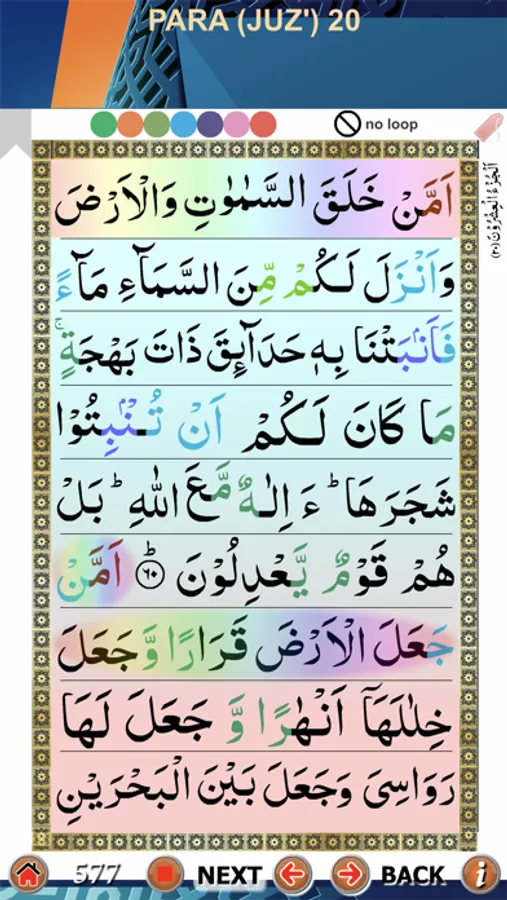 PARA (JUZ') 20
no loop
اَلْجُزْءُ الْعِشْرُوْنَ (٢٠)
اَمَّنْ خَلَقَ السَّمٰوٰتِ وَالْاَرْضَ
وَاَنْزَلَ لَكُمْ مِّنَ السَّمَآءِ مَآءً
فَاَنْۢبَتْنَا بِهٖ حَدَآئِقَ ذَاتَ بَهْجَةٍ ۚ
مَا كَانَ لَكُمْ اَنْ تُنْۢبِتُوْا
شَجَرَهَا ؕ ءَ اِلٰهٌ مَّعَ اللّٰهِ ؕ بَلْ
هُمْ قَوْمٌ يَّعْدِلُوْنَ ؕ ۝٦٠ اَمَّنْ
جَعَلَ الْاَرْضَ قَرَارًا وَّجَعَلَ
خِلٰلَهَاۤ اَنْهٰرًا وَّ جَعَلَ لَهَا
رَوَاسِىَ وَجَعَلَ بَيْنَ الْبَحْرَيْنِ
577 NEXT BACK i